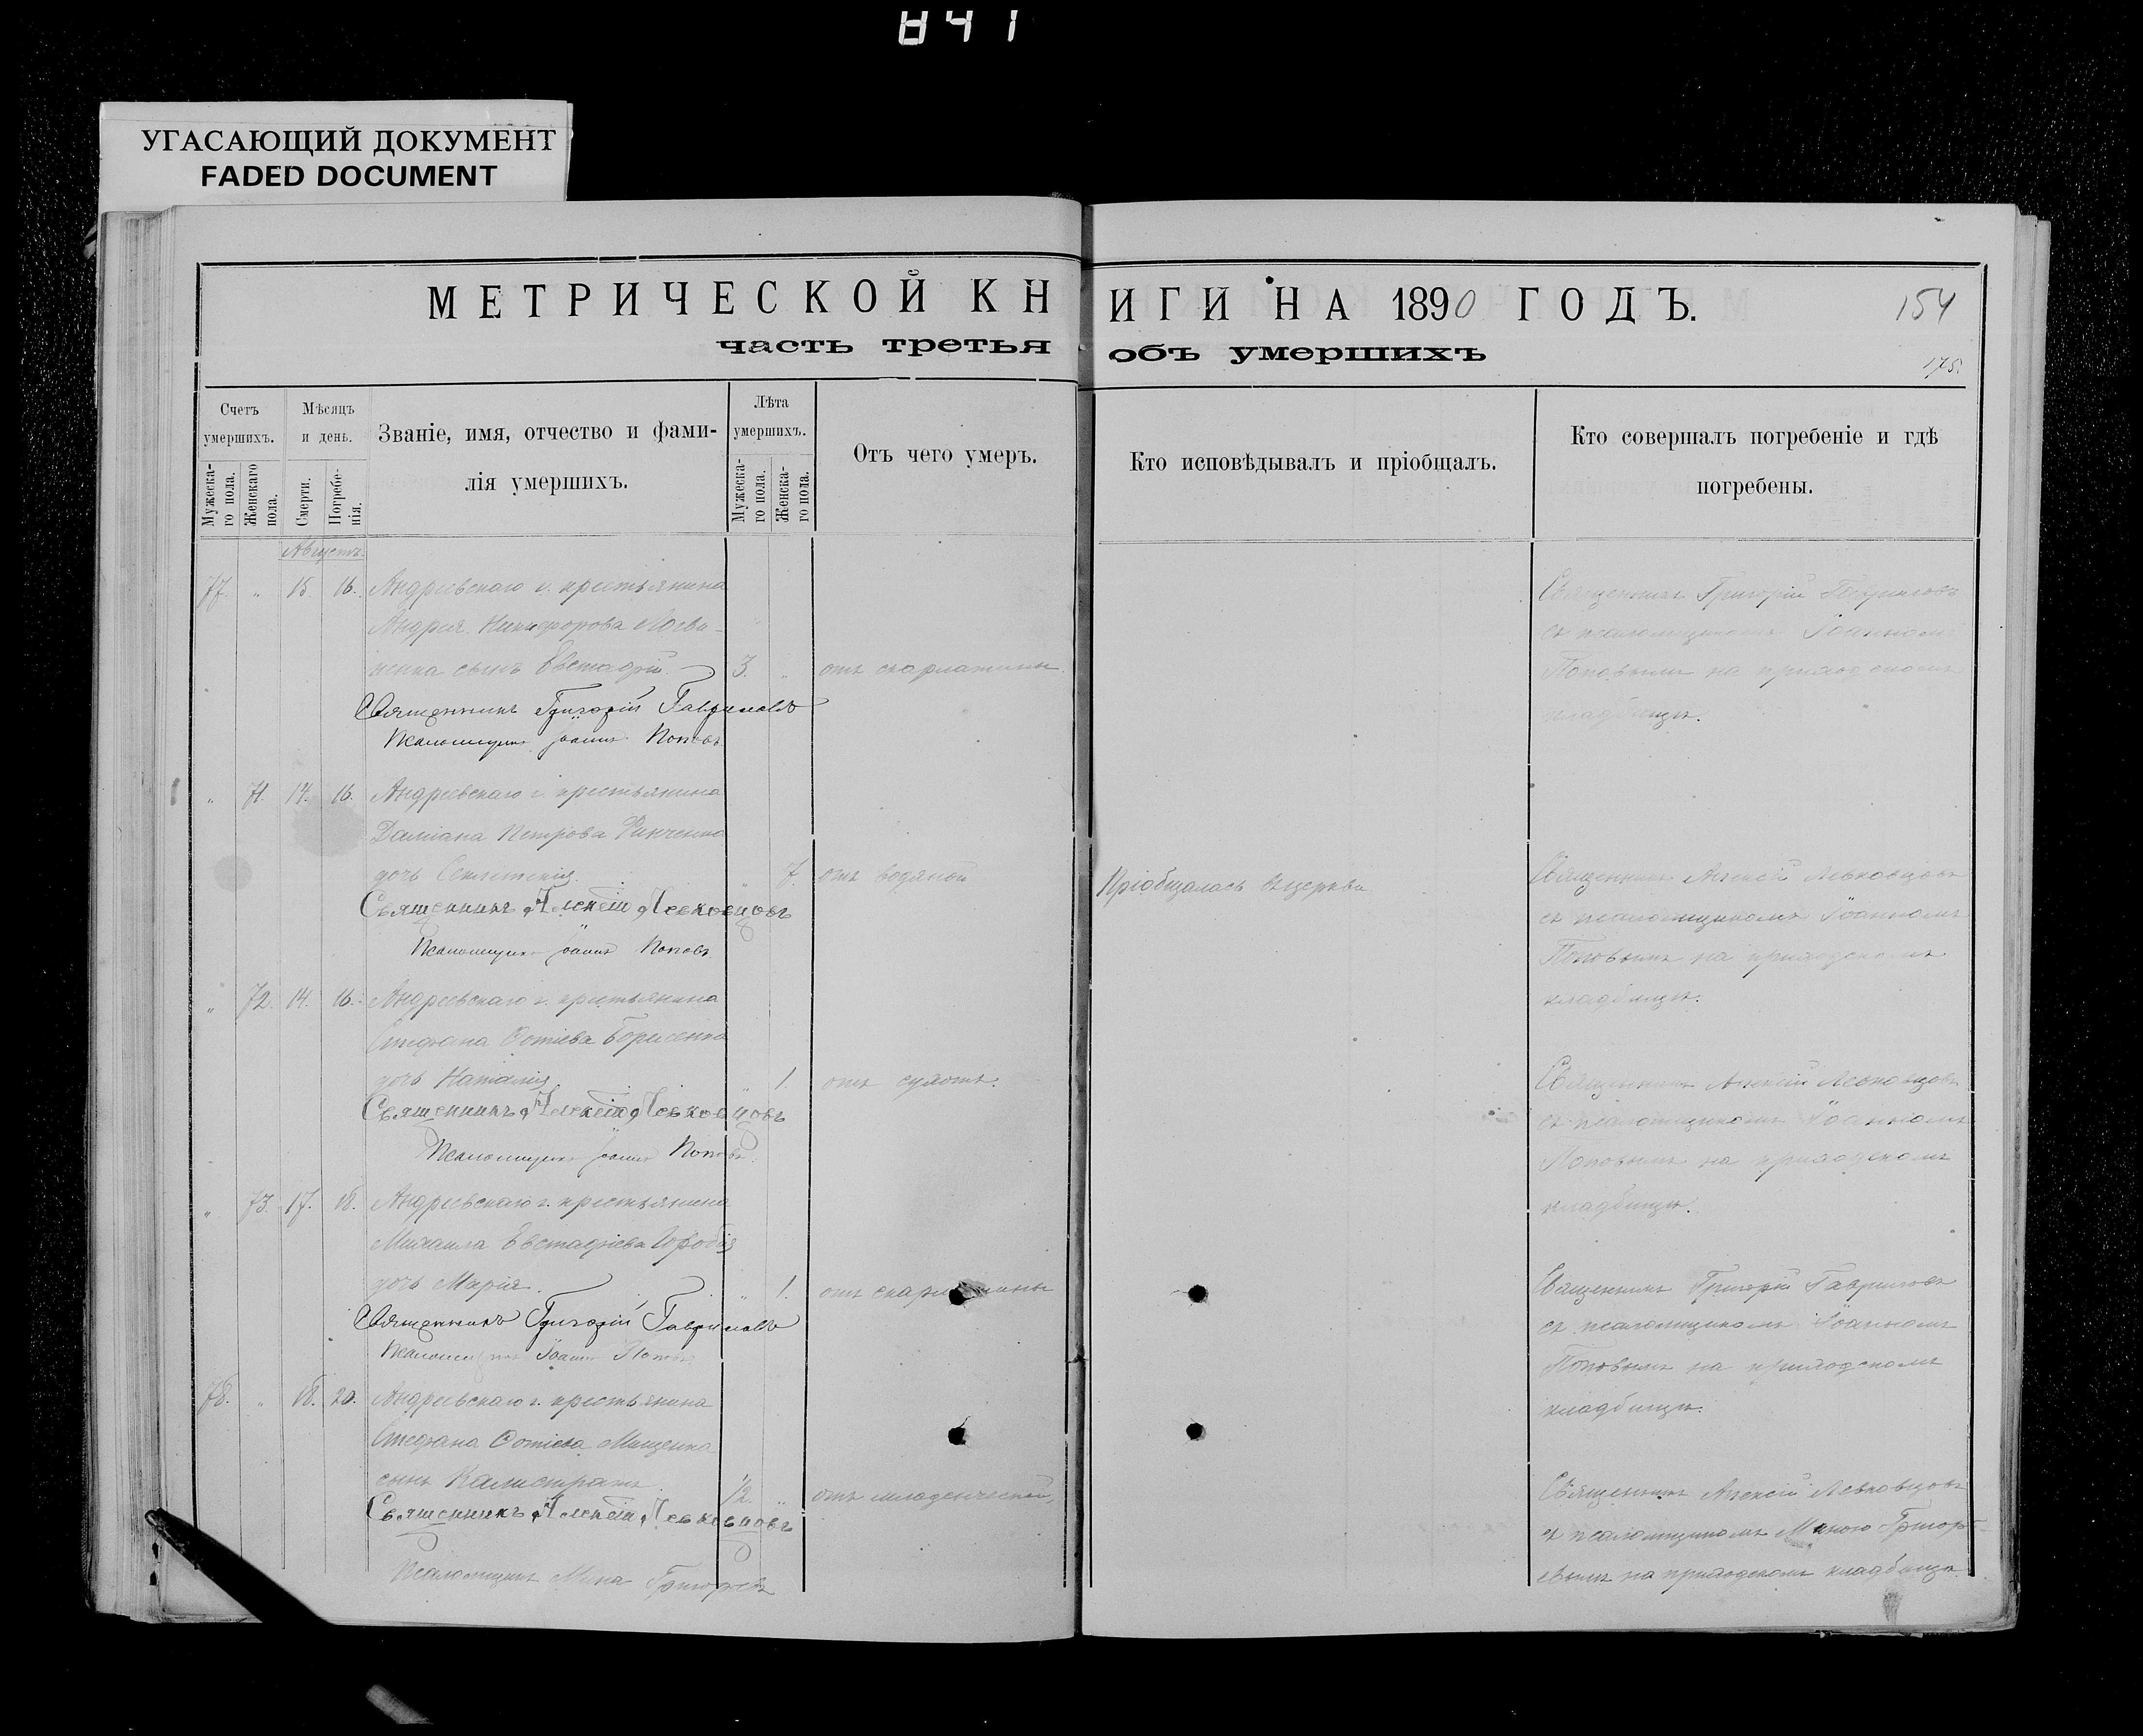 841
УГАСАЮЩИЙ ДОКУМЕНТ
FADED DOCUMENT
МЕТРИЧЕСКОЙ КНИГИ НА 1890 ГОДЪ.
154
часть третья объ умершихъ
175.
Счетъ умершихъ.
Мужеска-го пола.
Женскаго пола.
Мѣсяцъ и день.
Смерти.
Погребе-нія.
Званіе, имя, отчество и фами-
лія умершихъ.
Лѣта умершихъ.
Мужеска-го пола.
Женска-го пола.
Отъ чего умеръ.
Кто исповѣдывалъ и пріобщалъ.
Кто совершалъ погребеніе и гдѣ
погребены.
Августъ
77. " 15. 16. Андреевскаго с. крестьянина
Андрея Никифорова Логви-
ненка сынъ Евстафій. 3. " отъ скарлатины.
Священникъ Григорій Гавриловъ
съ псаломщикомъ Іоанномъ
Поповымъ на приходскомъ
кладбищѣ.
Священникъ Григорій Гавриловъ
Псаломщикъ Іоаннъ Поповъ
" 71. 14. 16. Андреевскаго с. крестьянина
Даміана Петрова
дочь Секлетикія. " 7. отъ водяной
Пріобщалась въ церкви
Священникъ Алексій Левковцовъ
съ псаломщикомъ Іоанномъ
Поповымъ на приходскомъ
кладбищѣ.
Священникъ Алексій Левковцовъ
Псаломщикъ Іоаннъ Поповъ
" 72. 14. 16. Андреевскаго с. крестьянина
Стефана Фотіева Борисенка
дочь Наталія " 1. отъ сухотъ.
Священникъ Алексій Левковцовъ
съ псаломщикомъ Іоанномъ
Поповымъ на приходскомъ
кладбищѣ.
Священникъ Алексій Левковцовъ
Псаломщикъ Іоаннъ Поповъ.
" 73. 17. 18. Андреевскаго с. крестьянина
Михаила Евстафіева
дочь Марія. " 1. отъ скарлатины
Священникъ Григорій Гавриловъ
съ псаломщикомъ Іоанномъ
Поповымъ на приходскомъ
кладбищѣ.
Священникъ Григорій Гавриловъ
Псаломщикъ Іоаннъ Поповъ
78. " 18. 20. Андреевскаго с. крестьянина
Стефана Фотіева Мищенка
сынъ Калистратъ. 1/2. " отъ младенческой,
Священникъ Алексій Левковцовъ
съ псаломщикомъ Миною Григорь-
евымъ на приходскомъ кладбищѣ.
Священникъ Алексій Левковцовъ
Псаломщикъ Мина Григорьевъ